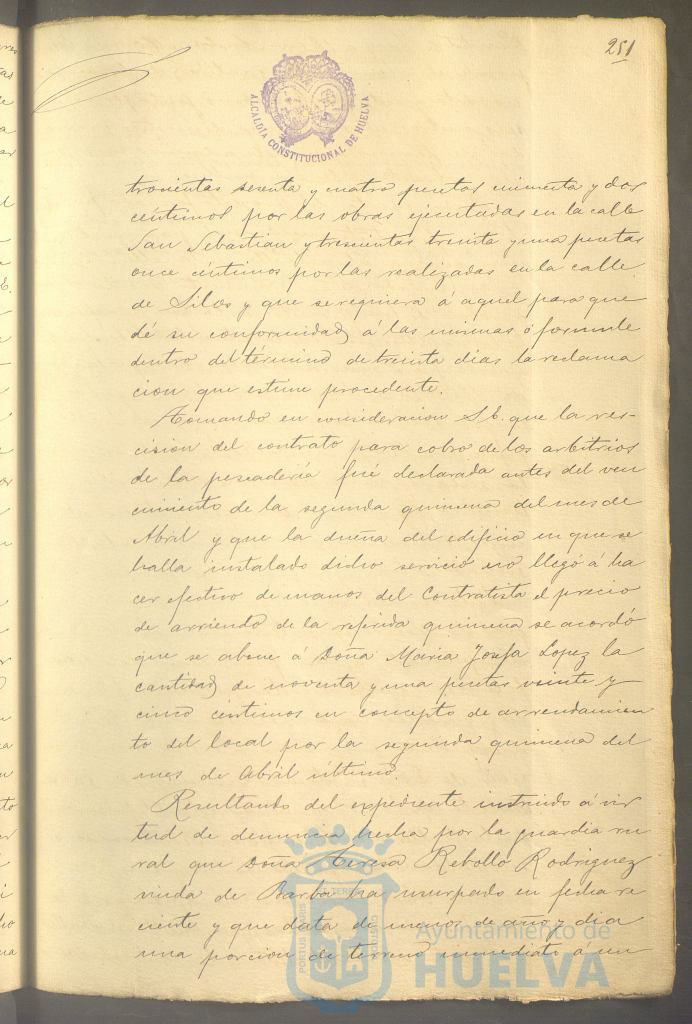 251
ALCALDÍA CONSTITUCIONAL DE HUELVA
trescientas sesenta y cuatro pesetas cincuenta y dos
céntimos por las obras ejecutadas en la calle
San Sebastian y trescientas treinta y una pesetas
once céntimos por las realizadas en la calle
de Silos y que se requiera á aquel para que
dé su conformidad á las mismas ó formule
dentro del término de treinta dias la reclama
cion que estime procedente.
Tomando en consideracion S.E. que la res-
cision del contrato para cobro de los arbitrios
de la pescadería fué declarada antes del ven
cimiento de la segunda quincena del mes de
Abril y que la dueña del edificio en que se
halla instalado dicho servicio no llegó á ha
cer efectivo de manos del Contratista el precio
de arriendo de la referida quincena se acordó
que se abone á Doña Maria Josefa Lopez la
cantidad de noventa y una pesetas veinte y
cinco céntimos en concepto de arrendamien
to del local por la segunda quincena del
mes de Abril último.
Resultando del expediente instruido á vir
tud de denuncia hecha por la guardia ru
ral que Doña Teresa Rebollo Rodriguez
viuda de Barba ha usurpado en fecha re
ciente y que data de menos de año y dia
una porcion de terreno inmediato á un
PORTUS MARIS ET TERRAE CUSTODIA
Ayuntamiento de
HUELVA